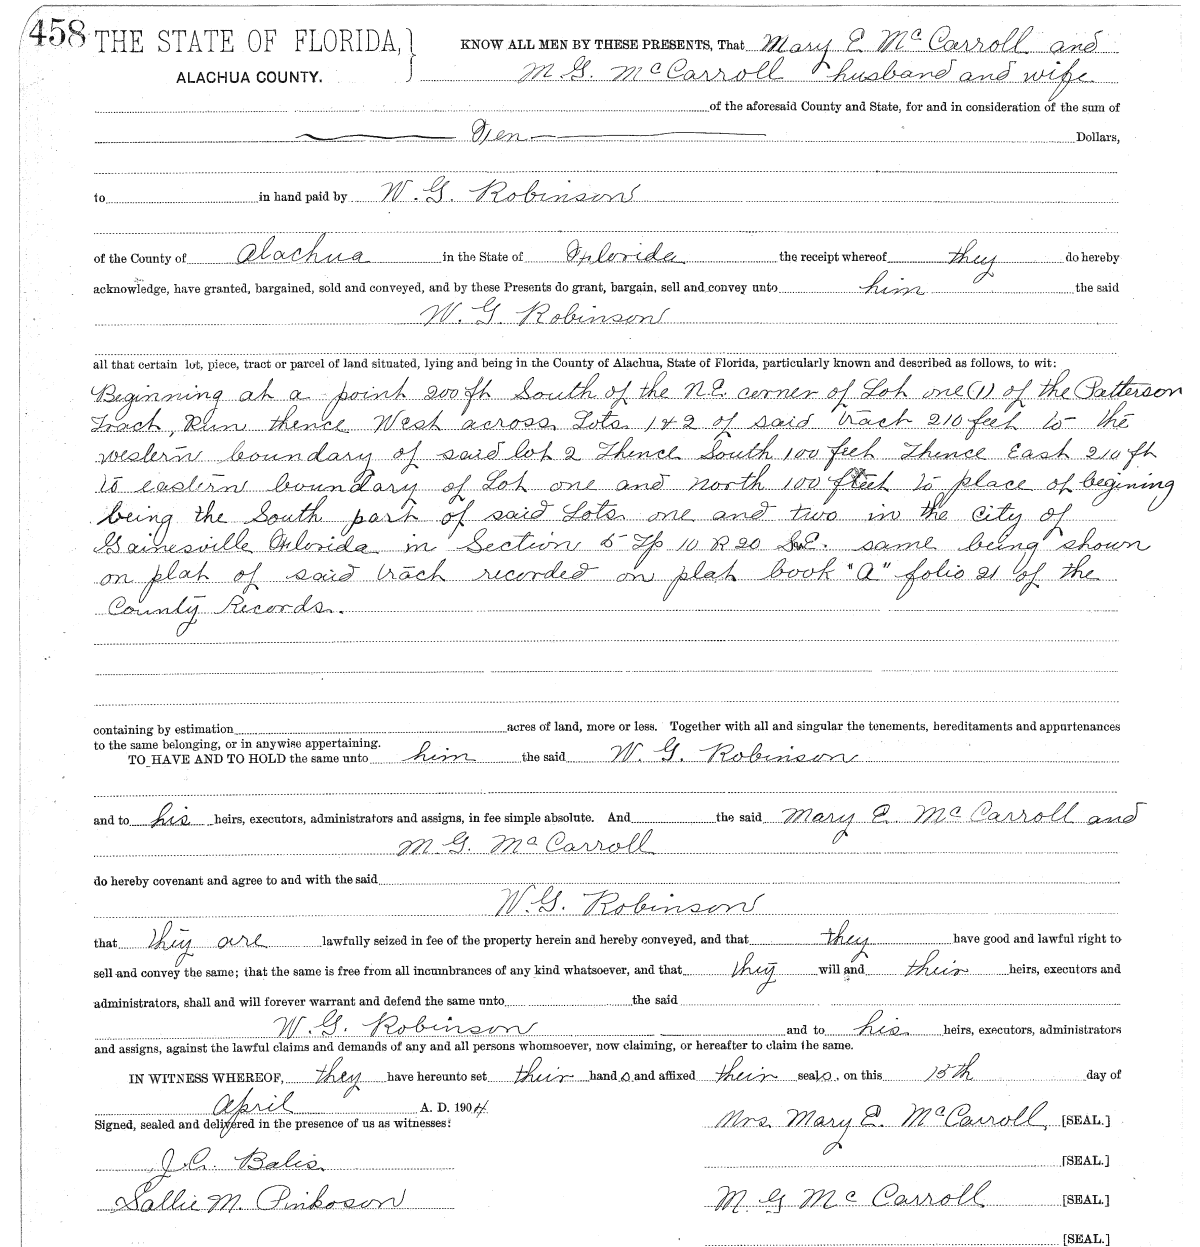 458 THE STATE OF FLORIDA, KNOW ALL MEN BY THESE PRESENTS, That Mary E. McCarroll and
ALACHUA COUNTY. M. G. McCarroll husband and wife
of the aforesaid County and State, for and in consideration of the sum of
Ten Dollars,
to in hand paid by W. G. Robinson
of the County of Alachua in the State of Florida the receipt whereof they do hereby
acknowledge, have granted, bargained, sold and conveyed, and by these Presents do grant, bargain, sell and convey unto him the said
W. G. Robinson
all that certain lot, piece, tract or parcel of land situated, lying and being in the County of Alachua, State of Florida, particularly known and described as follows, to wit:
Beginning at a point 200 ft South of the N.E. corner of Lot one (1) of the Patterson
Tract, Run thence West across Lots 1 & 2 of said tract 210 feet to the
western boundary of said lot 2 Thence South 100 feet Thence East 210 ft
to eastern boundary of Lot one and north 100 feet to place of begining
being the South part of said Lots one and two in the city of
Gainesville Florida in Section 5 Tp 10 R 20 S.E. same being shown
on plat of said tract recorded on plat book "A" folio 21 of the
County Records.
containing by estimation acres of land, more or less. Together with all and singular the tenements, hereditaments and appurtenances
to the same belonging, or in anywise appertaining.
TO HAVE AND TO HOLD the same unto him the said W. G. Robinson
and to his heirs, executors, administrators and assigns, in fee simple absolute. And the said Mary E. McCarroll and
M. G. McCarroll
do hereby covenant and agree to and with the said
W. G. Robinson
that they are lawfully seized in fee of the property herein and hereby conveyed, and that they have good and lawful right to
sell and convey the same; that the same is free from all incumbrances of any kind whatsoever, and that they will and their heirs, executors and
administrators, shall and will forever warrant and defend the same unto the said
W. G. Robinson and to his heirs, executors, administrators
and assigns, against the lawful claims and demands of any and all persons whomsoever, now claiming, or hereafter to claim the same.
IN WITNESS WHEREOF, they have hereunto set their hands and affixed their seals, on this 15th day of
April A. D. 1904
Signed, sealed and delivered in the presence of us as witnesses: Mrs. Mary E. McCarroll [SEAL.]
J. C. Balis [SEAL.]
Sallie M. Pinkoson M. G McCarroll [SEAL.]
[SEAL.]